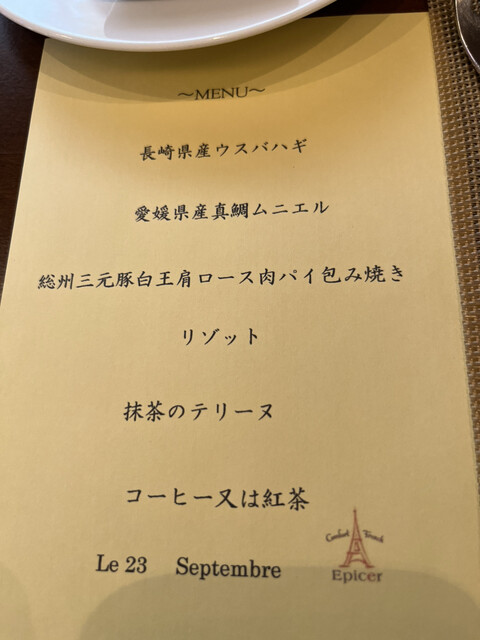 ～MENU～
長崎県産ウスバハギ
愛媛県産真鯛ムニエル
総州三元豚白王肩ロース肉パイ包み焼き
リゾット
抹茶のテリーヌ
コーヒー又は紅茶
Le 23 Septembre
Epicer